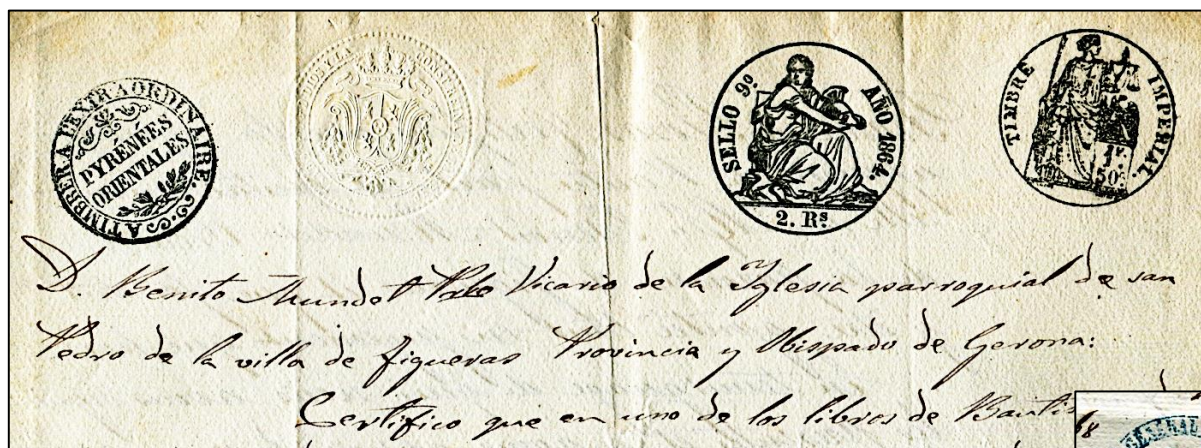 A TIMBRER A L'EXTRAORDINAIRE.
PYRÉNÉES
ORIENTALES
SELLO 9º AÑO 1864.
2. Rs
TIMBRE IMPERIAL.
1F.
50c.
D. Benito Mundet Pbro Vicario de la Yglesia parroquial de san
Pedro de la villa de figueras Provincia y Obispado de Gerona:
Certifico que en uno de los libros de